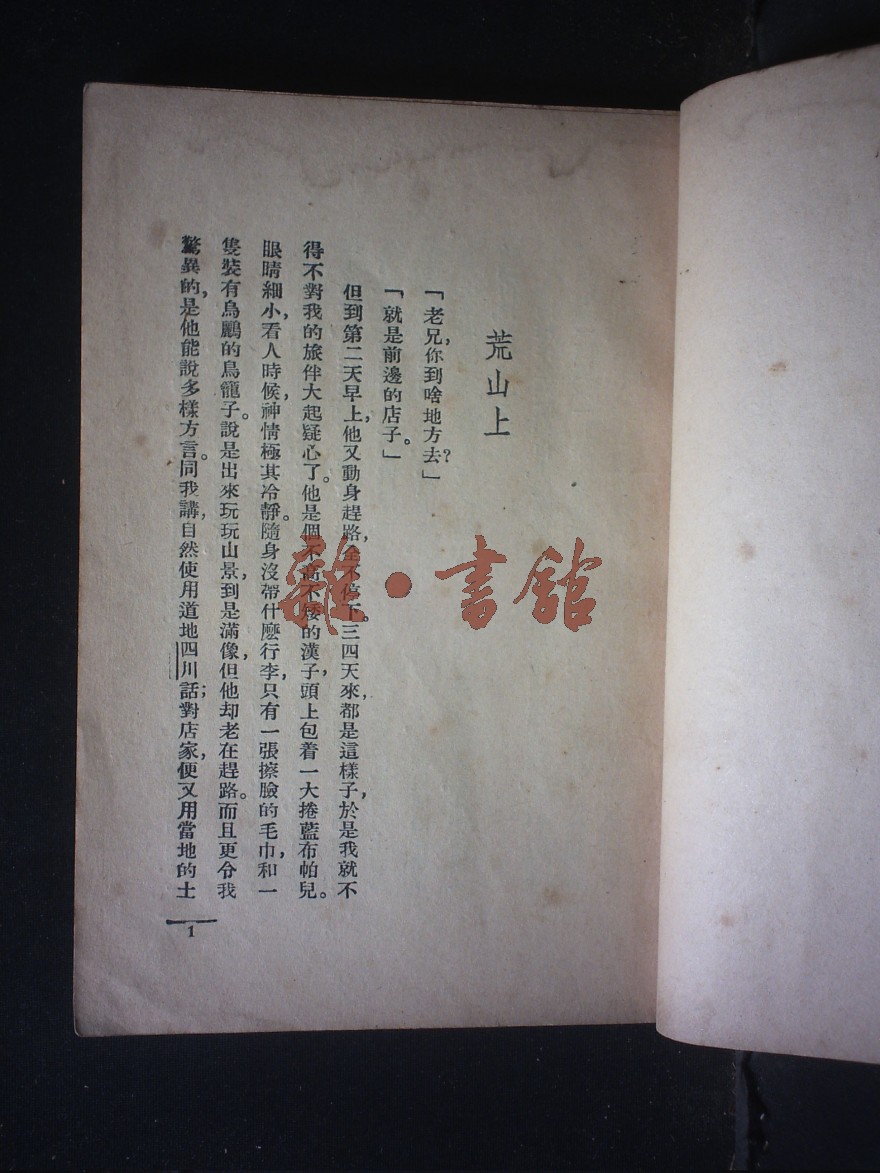 荒山上
「老兄，你到啥地方去？」
「就是前邊的店子。」
但到第二天早上，他又動身趕路，全不停下。三四天來，都是這樣子，於是我就不
得不對我的旅伴大起疑心了。他是個不高不矮的漢子，頭上包着一大捲藍布帕兒。
眼睛細小，看人時候，神情極其冷靜。隨身沒帶什麼行李，只有一張擦臉的毛巾，和一
隻裝有鳥鵬的鳥籠子。說是出來玩玩山景，到是滿像，但他却老在趕路。而且更令我
驚異的，是他能說多樣方言。同我講，自然使用道地四川話；對店家，便又用當地的土
1
雜·書館